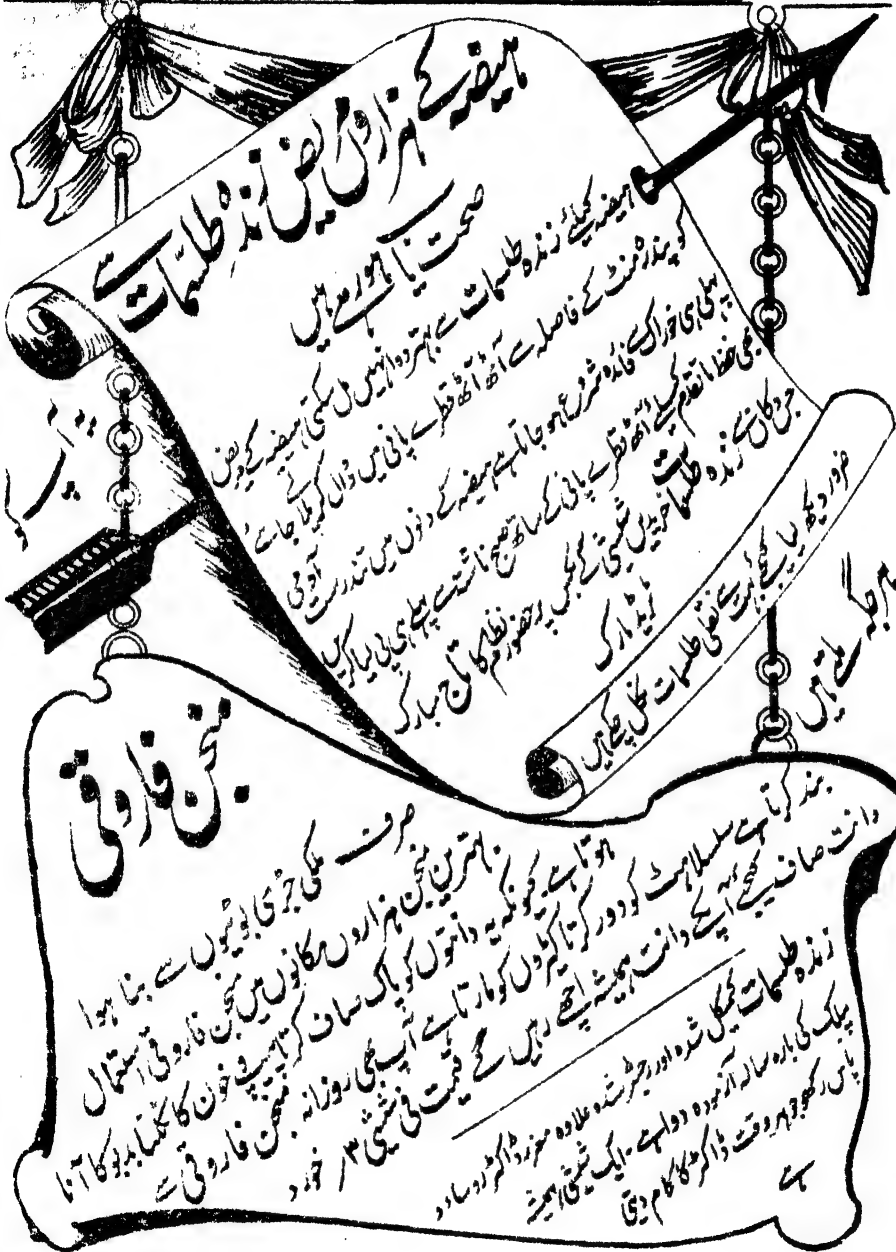 ہیضہ کے ہزاروں مریض زندہ طلسمات سے
صحت یاب ہو رہے ہیں
ہیضہ کیلئے زندہ طلسمات سے بہتر دوا نہیں مل سکتی ہیضہ کے مریض
کو پندرہ منٹ کے فاصلہ سے آٹھ آٹھ قطرے پانی میں ڈال کر پلا جائے
پہلی ہی خوراک سے فائدہ شروع ہو جاتا ہے ہیضہ کے دنوں میں تندرست آدمی
بھی حفظ ماتقدم کیلئے آٹھ قطرے پانی کے ساتھ صبح ناشتہ سے پہلے ہی پی لیا کریں
جس دکان سے زندہ طلسمات خریدیں شیشی کے بکس پر حضور نظام کا تاج مبارک
ٹریڈ مارک
ضرور دیکھ لیا کیجئے بہت سے نقلی طلسمات نکل چکے ہیں
یہ آپ کو
ہر جگہ ملتے ہیں
منجن فاروقی
صرف ملکی جڑی بوٹیوں سے بنا ہوا
بہترین منجن ہزاروں مکانوں میں منجن فاروقی استعمال
ہوتا ہے کیونکہ یہ دانتوں کو پاک صاف کرتا پیپ و خون کا نکلنا بدبو کا آنا
بند کرتا ہے سلسلاہٹ کو دور کرتا کیڑوں کو مارتا ہے آپ بھی روزانہ منجن فاروقی سے
دانت صاف کیجئے آپکے دانت ہمیشہ اچھے رہیں گے قیمت فی شیشی ۳؍ خورد
زندہ طلسمات کیمیکل شدہ اور رجسٹر شدہ علاوہ معزز ڈاکٹر
پبلک کی بارہ سالہ آزمودہ دوا ہے ۔ ایک شیشی ہمیشہ
پاس رکھو جو ہر وقت ڈاکٹر کا کام دیتی
ہے